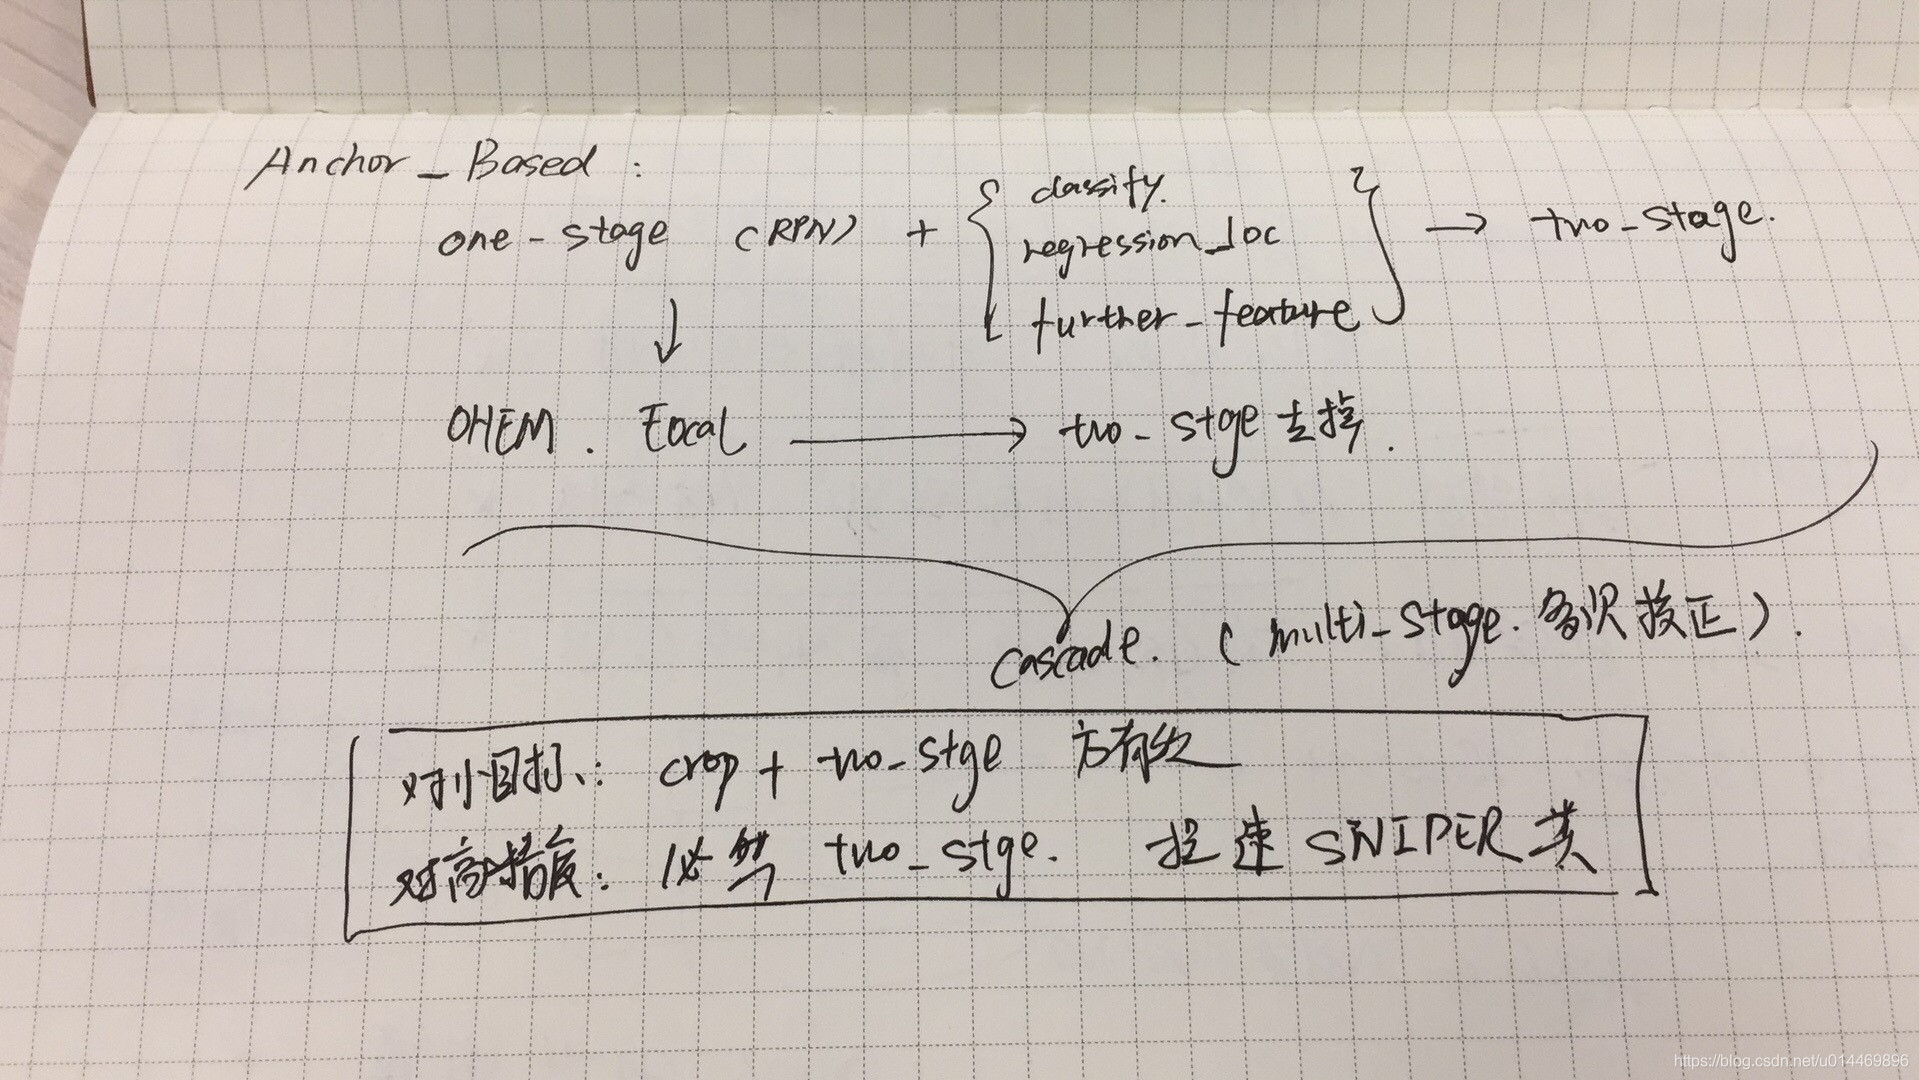 Anchor_Based :
one-stage (RPN) + { classify. regression_loc further_feature } → two_stage.
↓
OHEM . Focal → two_stge 去掉.
cascade. (multi_stage. 多次校正).
对小目标: crop + two_stge 方有效
对高精度: 必然 two_stge. 提速 SNIPER 类
https://blog.csdn.net/u014469896